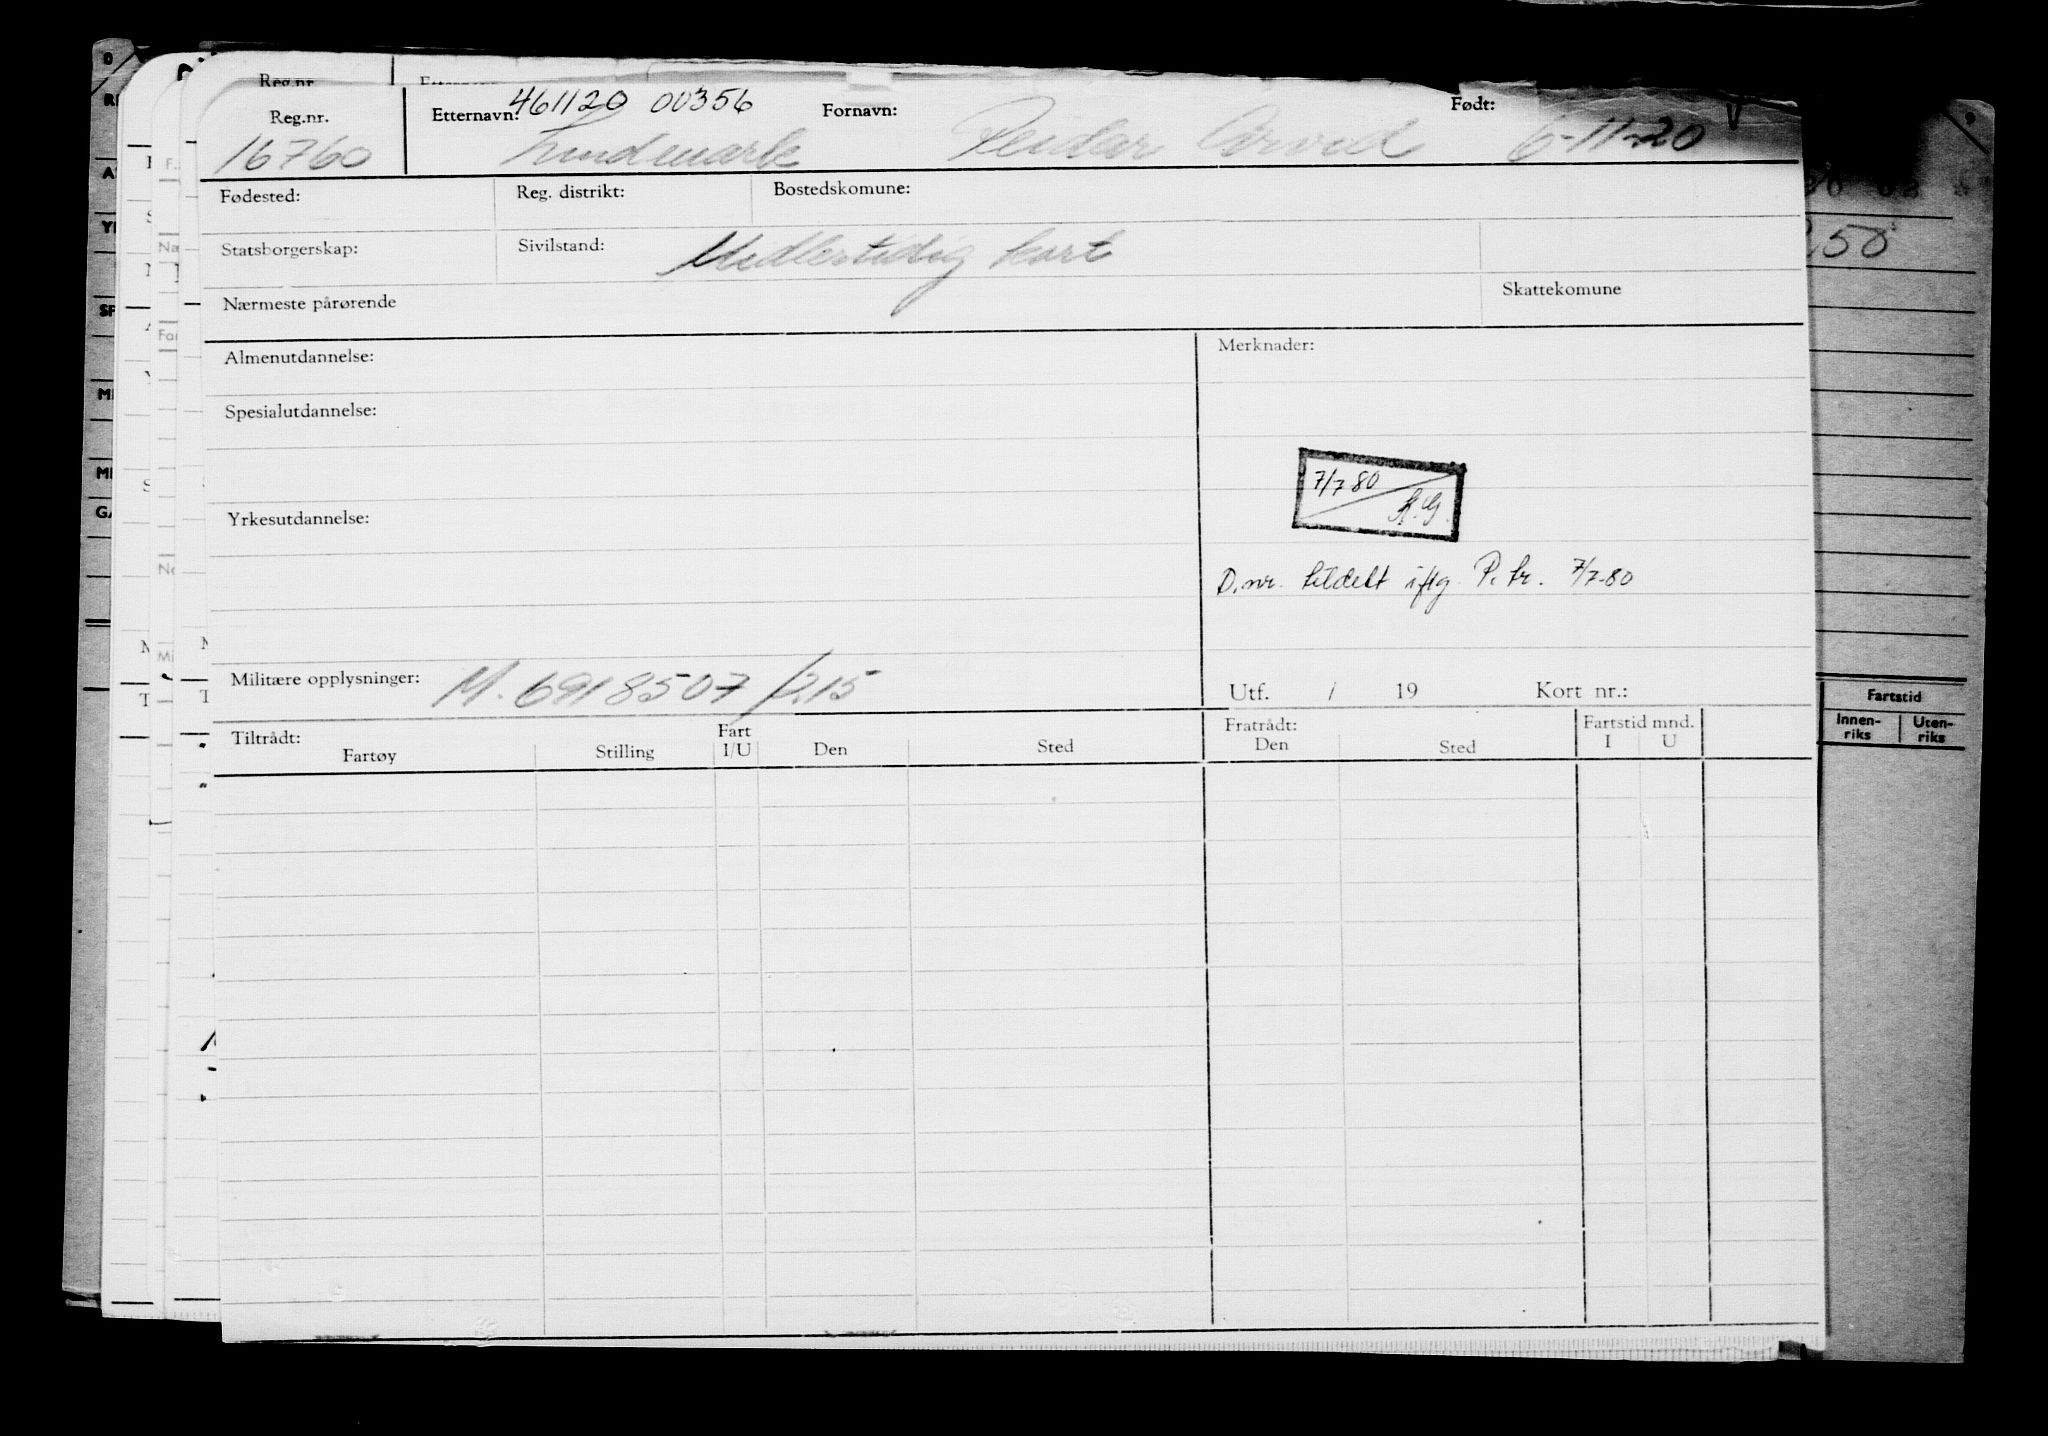 Reg.nr.
461120 00356
Reg.nr. Etternavn: Fornavn: Født:
16760 Lindmark Peidar Arvid 6-11-20
Fødested: Reg. distrikt: Bostedskomune:
Statsborgerskap: Sivilstand: Midlertidig kort
Nærmeste pårørende Skattekomune
Almenutdannelse: Merknader:
Spesialutdannelse:
7/7 80
Yrkesutdannelse:
D.nr. tildelt iflg. P. br. 7/7-80
Militære opplysninger: M. 6918507/215
Utf. / 19 Kort nr.:
Tiltrådt: Fart Fratrådt: Fartstid mnd.
Fartøy Stilling I/U Den Sted Den Sted I U
250
Fartstid
Innen- Uten-
riks riks